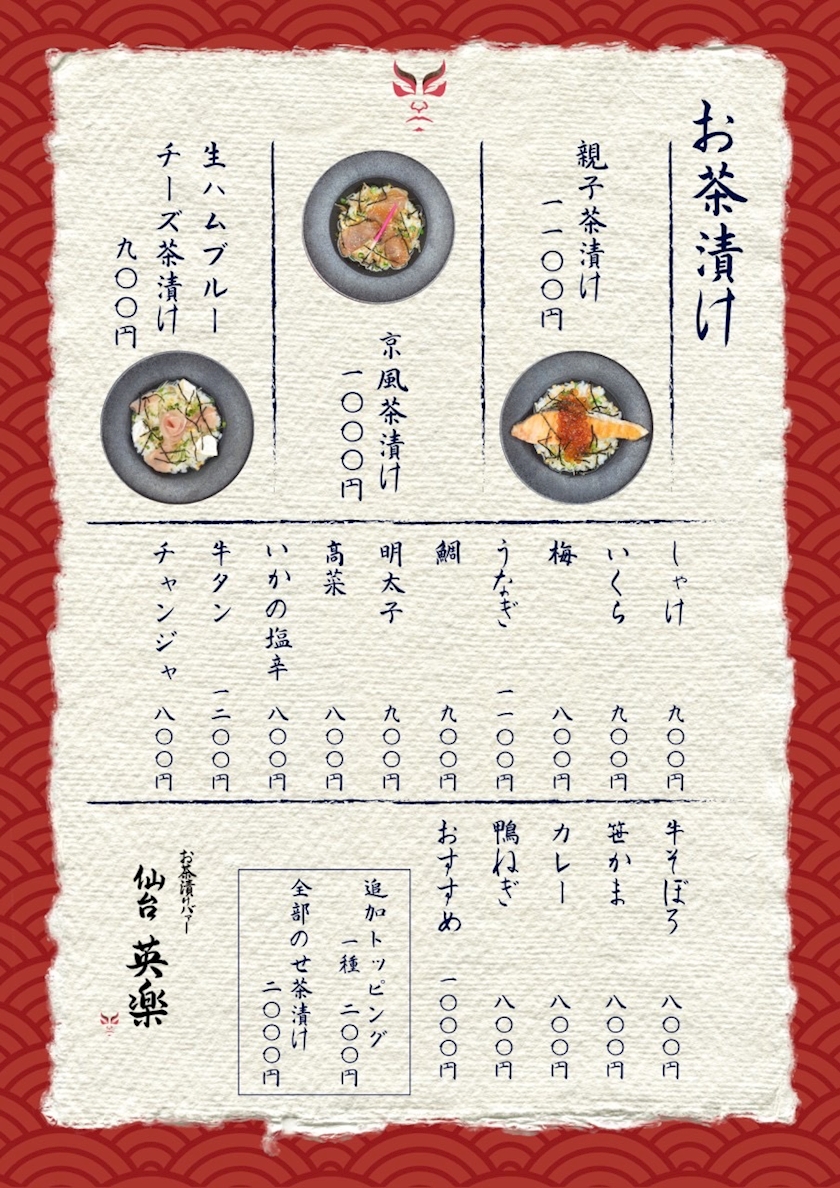 お茶漬け
親子茶漬け
一一〇〇円
京風茶漬け
一〇〇〇円
生ハムブルー
チーズ茶漬け
九〇〇円
しゃけ 九〇〇円
いくら 九〇〇円
梅 八〇〇円
うなぎ 一一〇〇円
鯛 九〇〇円
明太子 九〇〇円
高菜 八〇〇円
いかの塩辛 八〇〇円
牛タン 一二〇〇円
チャンジャ 八〇〇円
牛そぼろ 八〇〇円
笹かま 八〇〇円
カレー 八〇〇円
鴨ねぎ 八〇〇円
おすすめ 一〇〇〇円
追加トッピング
一種 二〇〇円
全部のせ茶漬け
二〇〇〇円
お茶漬けバァー
仙台 英楽